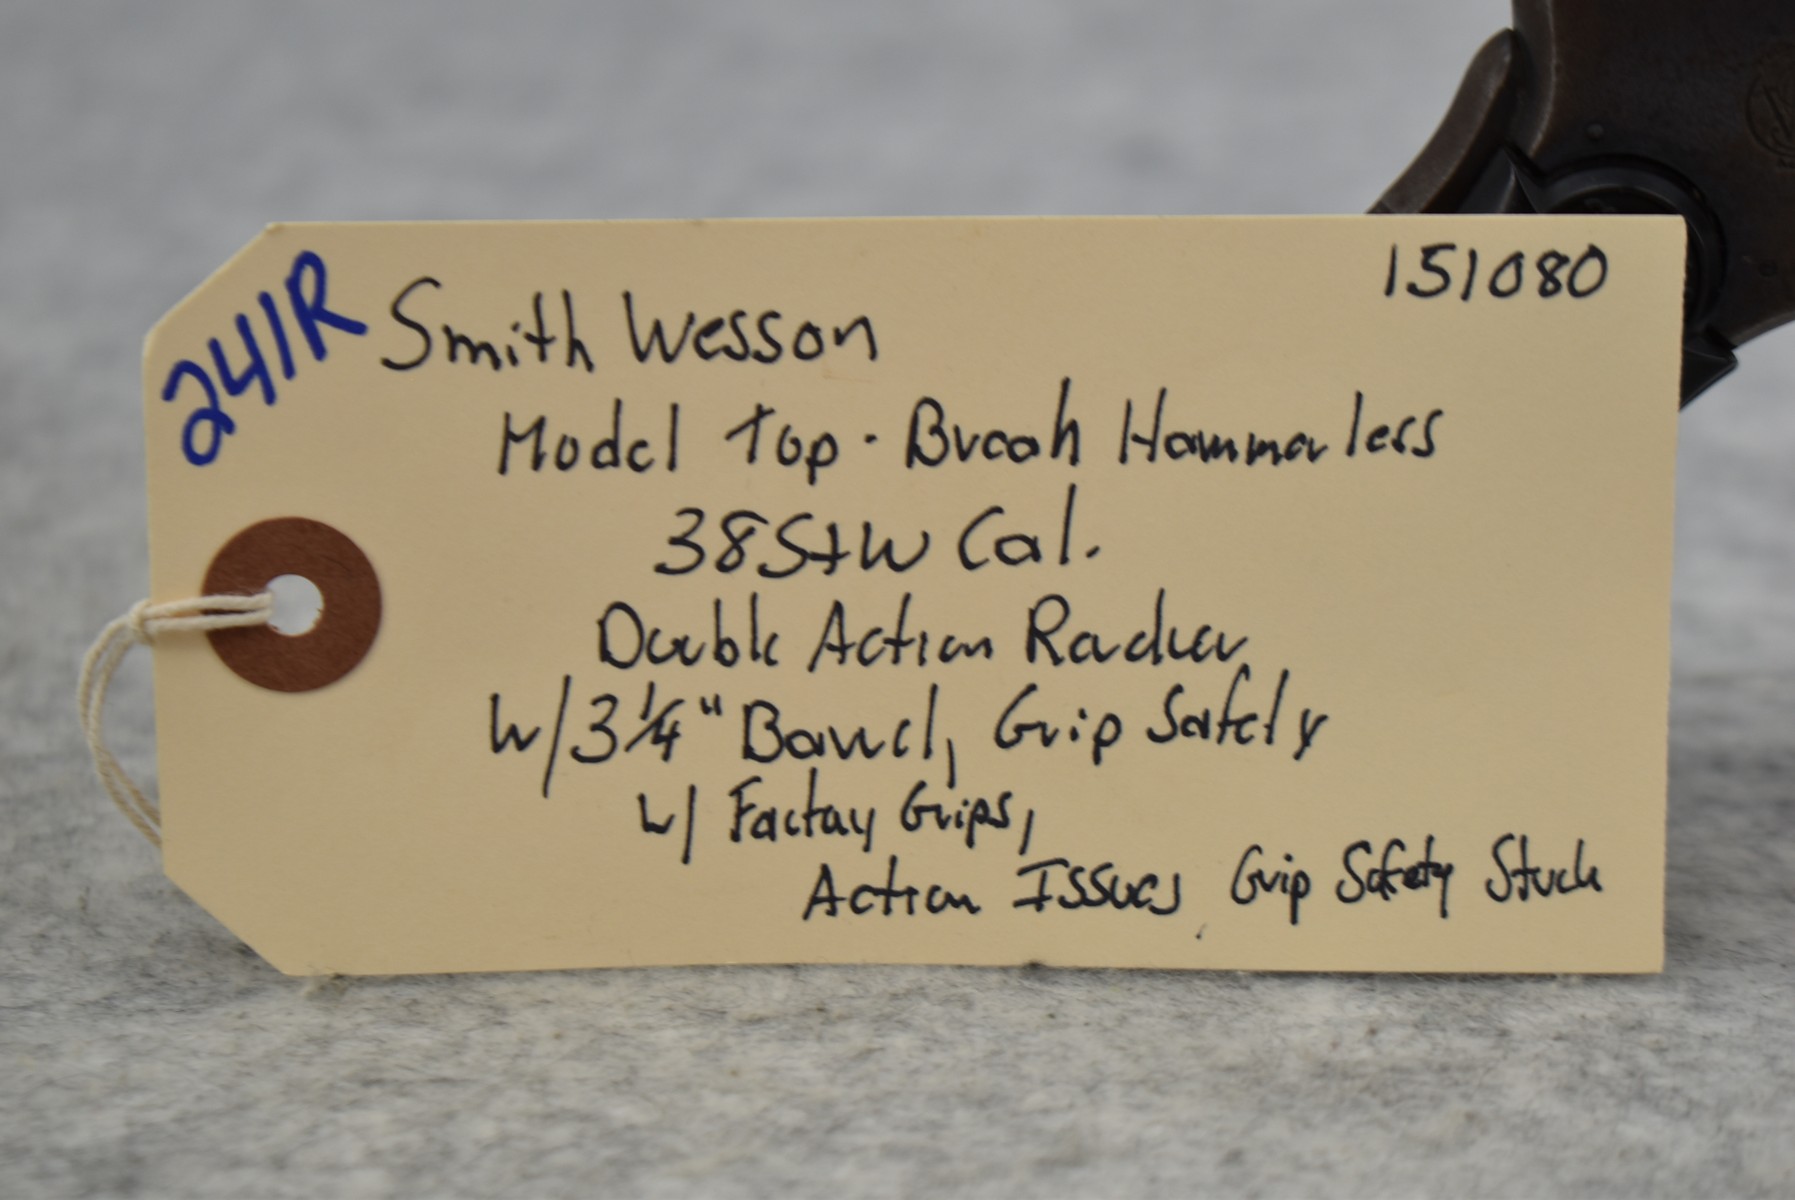 151080
241R
Smith Wesson
Model Top-Break Hammerless
38 S+W Cal.
Double Action Revolver
w/ 3 1/4" Barrel, Grip Safety
w/ Factory Grips,
Action Issues, Grip Safety Stuck